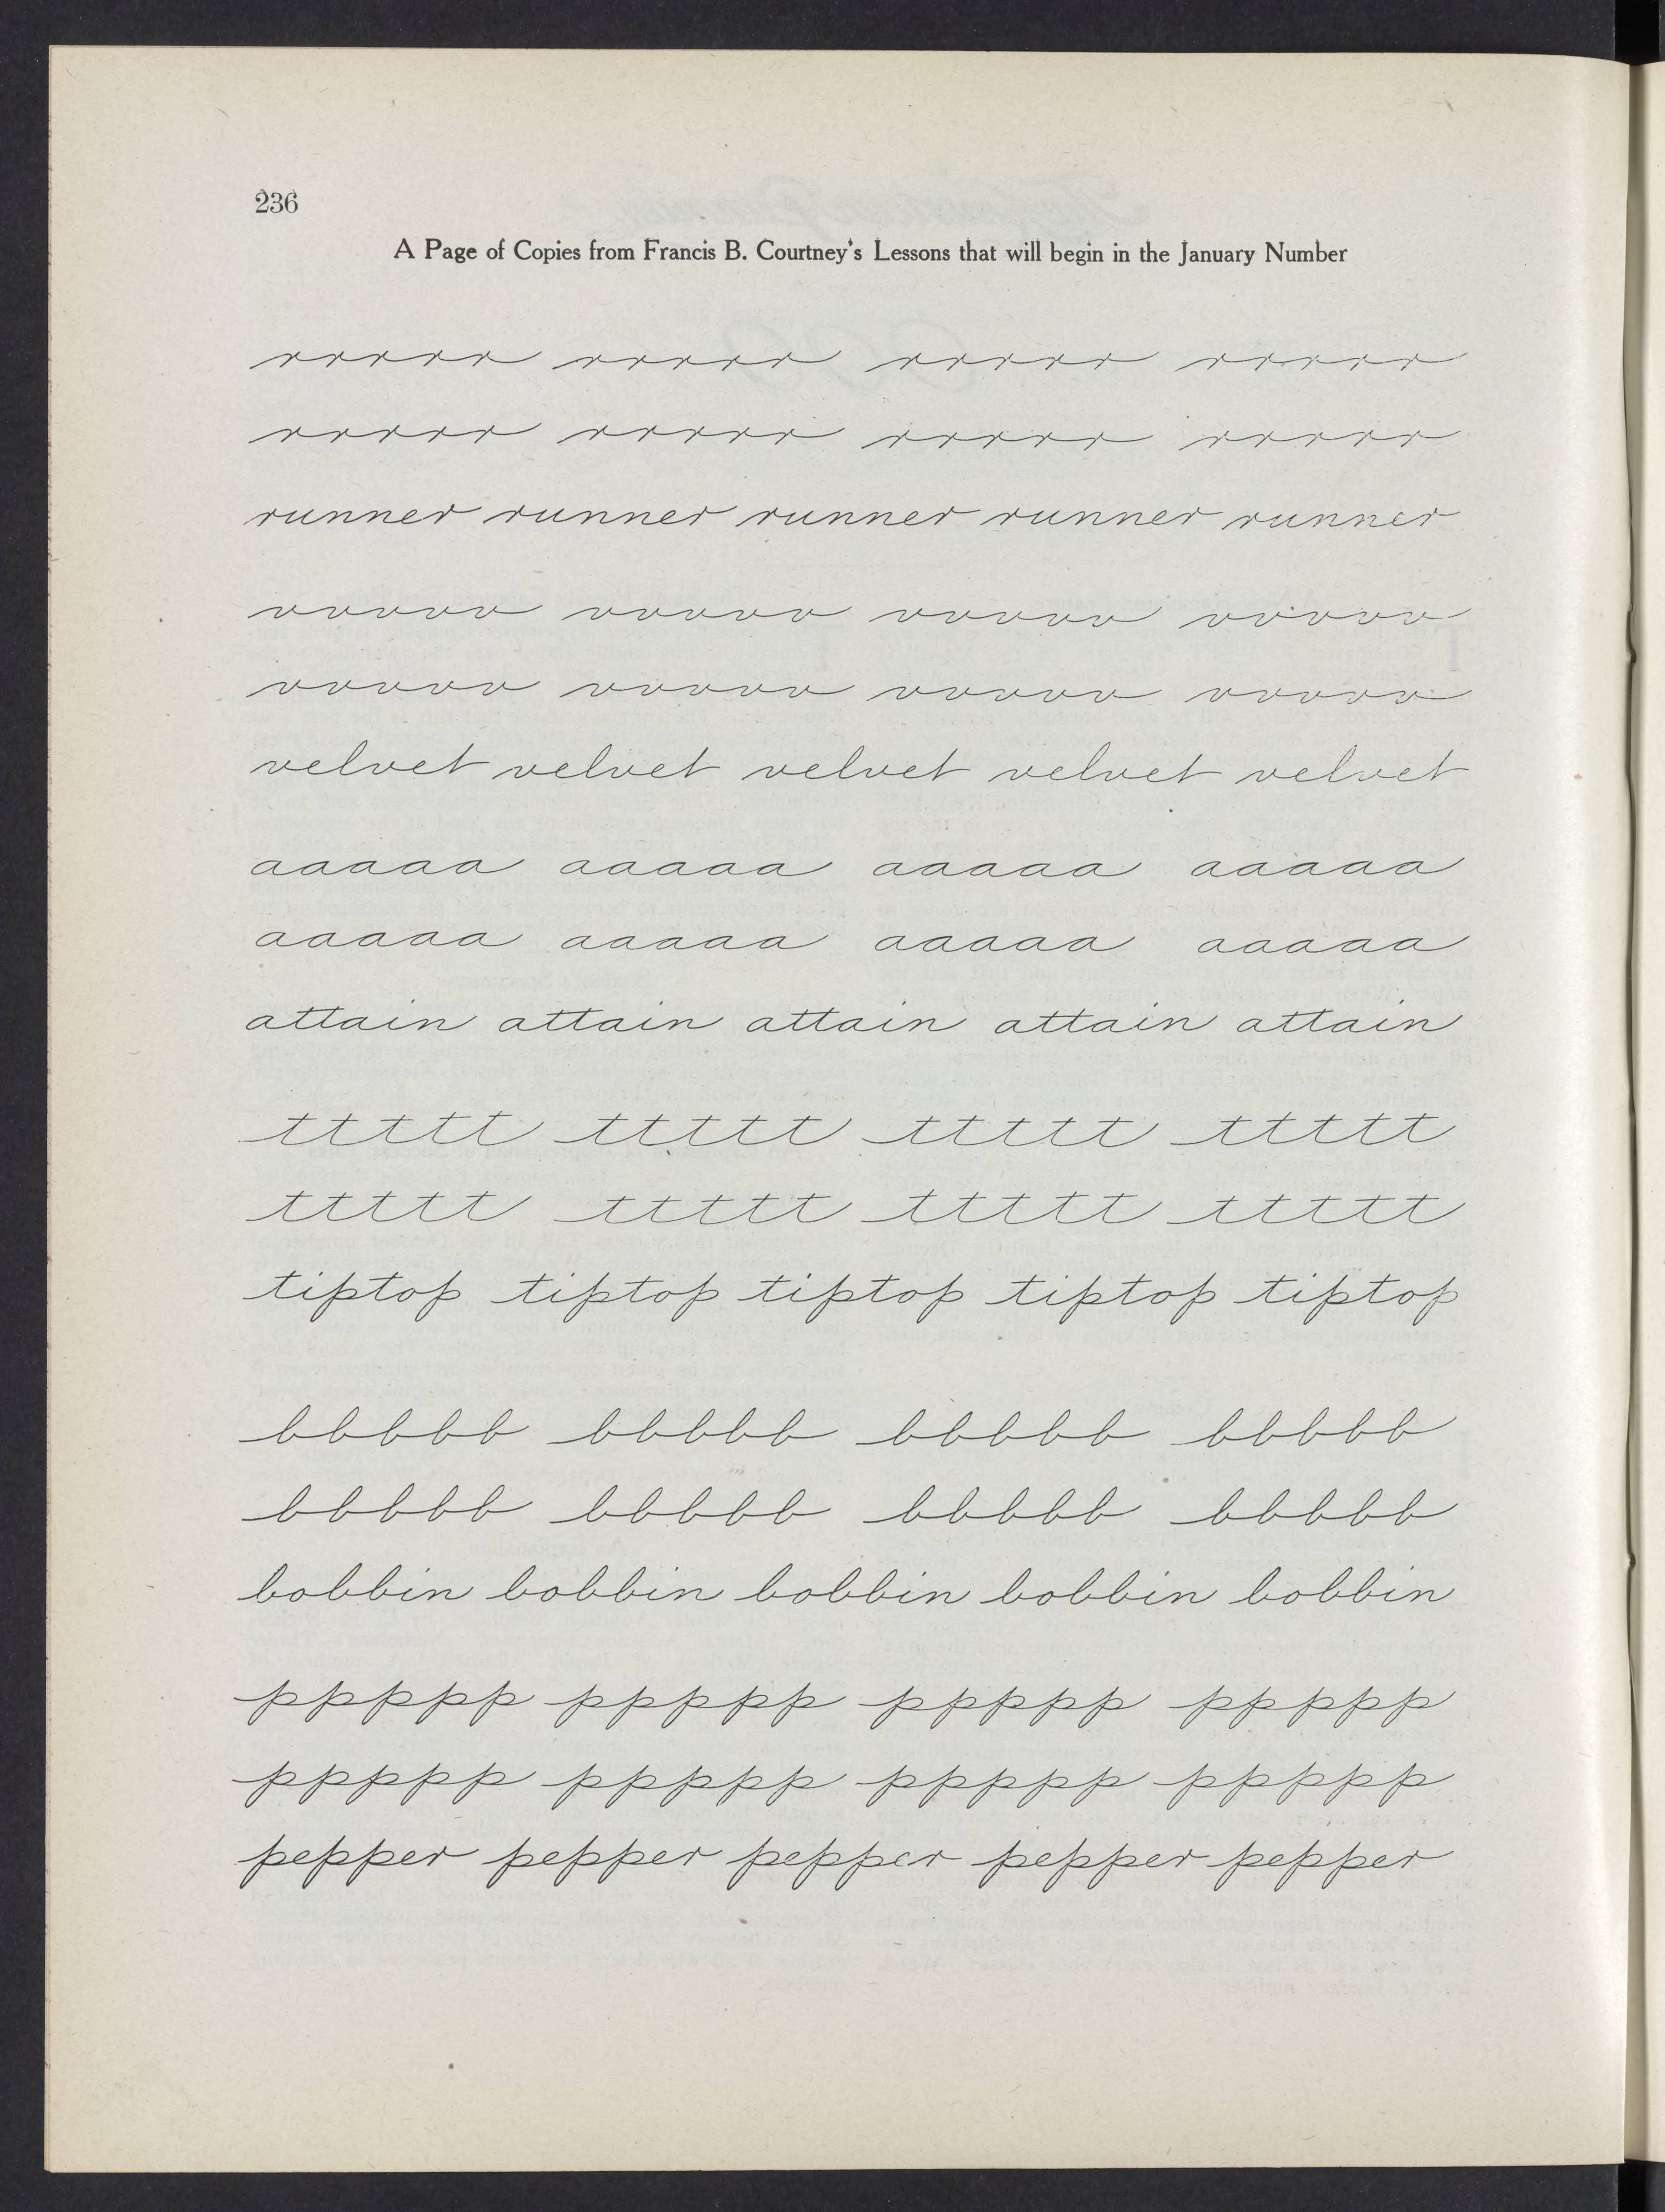 236
A Page of Copies from Francis B. Courtney's Lessons that will begin in the January Number
rrrrr rrrrr rrrrr rrrrr
rrrrr rrrrr rrrrr rrrrr
runner runner runner runner runner
vvvvv vvvvv vvvvv vvvvv
vvvvv vvvvv vvvvv vvvvv
velvet velvet velvet velvet velvet
aaaaa aaaaa aaaaa aaaaa
aaaaa aaaaa aaaaa aaaaa
attain attain attain attain attain
ttttt ttttt ttttt ttttt
ttttt ttttt ttttt ttttt
tiptop tiptop tiptop tiptop tiptop
bbbbb bbbbb bbbbb bbbbb
bbbbb bbbbb bbbbb bbbbb
bobbin bobbin bobbin bobbin bobbin
ppppp ppppp ppppp ppppp
ppppp ppppp ppppp ppppp
pepper pepper pepper pepper pepper